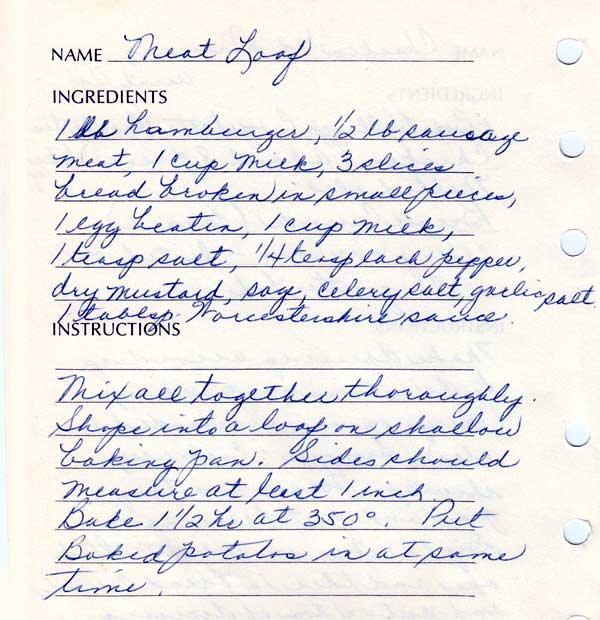 NAME Meat Loaf
INGREDIENTS
1 lb hamburger, 1/2 lb sausage
meat, 1 cup milk, 3 slices
bread broken in small pieces,
1 egg beaten, 1 cup milk,
1 teasp salt, 1/4 teasp lach pepper,
dry mustard, sage, celery salt, garlic salt
1 tablsp. Worcestershire sauce.
INSTRUCTIONS
Mix all together thoroughly.
Shape into a loaf on shallow
baking pan. Sides should
measure at least 1 inch
Bake 1 1/2 hr at 350°. Put
Baked potatos in at same
time.